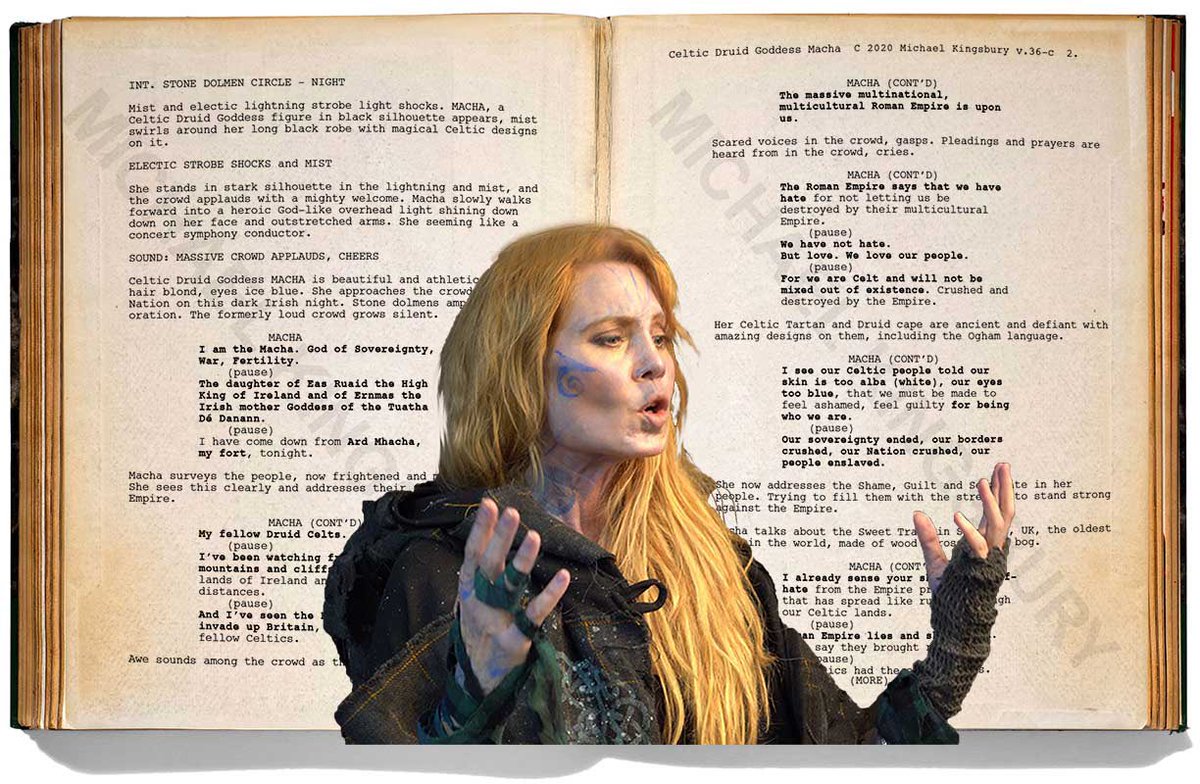 INT. STONE DOLMEN CIRCLE – NIGHT
Mist and electic lightning strobe light shocks. MACHA, a
Celtic Druid Goddess figure in black silhouette appears, mist
swirls around her long black robe with magical Celtic designs
on it.
ELECTIC STROBE SHOCKS and MIST
She stands in stark silhouette in the lightning and mist, and
the crowd applauds with a mighty welcome. Macha slowly walks
forward into a heroic God-like overhead light shining down
down on her face and outstretched arms. She seeming like a
concert symphony conductor.
SOUND: MASSIVE CROWD APPLAUDS, CHEERS
Celtic Druid Goddess MACHA is beautiful and athletic
hair blond, eyes ice blue. She approaches the crowd
Nation on this dark Irish night. Stone dolmens amp
oration. The formerly loud crowd grows silent.
MACHA
I am the Macha. God of Sovereignty,
War, Fertility.
(pause)
The daughter of Eas Ruaid the High
King of Ireland and of Ernmas the
Irish mother Goddess of the Tuatha
Dé Danann.
(pause)
I have come down from Ard Mhacha,
my fort, tonight.
Macha surveys the people, now frightened and
She sees this clearly and addresses their
Empire.
MACHA (CONT'D)
My fellow Druid Celts.
(pause)
I've been watching
mountains and cliffs
lands of Ireland
distances.
(pause)
And I've seen the
invade up Britain,
fellow Celtics.
Awe sounds among the crowd as
Celtic Druid Goddess Macha C 2020 Michael Kingsbury v.36-c 2.
MACHA (CONT'D)
The massive multinational,
multicultural Roman Empire is upon
us.
Scared voices in the crowd, gasps. Pleadings and prayers are
heard from in the crowd, cries.
MACHA (CONT'D)
The Roman Empire says that we have
hate for not letting us be
destroyed by their multicultural
Empire.
(pause)
We have not hate.
But love. We love our people.
(pause)
For we are Celt and will not be
mixed out of existence. Crushed and
destroyed by the Empire.
Her Celtic Tartan and Druid cape are ancient and defiant with
amazing designs on them, including the Ogham language.
MACHA (CONT'D)
I see our Celtic people told our
skin is too alba (white), our eyes
too blue, that we must be made to
feel ashamed, feel guilty for being
who we are.
(pause)
Our sovereignty ended, our borders
crushed, our Nation crushed, our
people enslaved.
She now addresses the Shame, Guilt and in her
people. Trying to fill them with the to stand strong
against the Empire.
talks about the Sweet UK, the oldest
in the world, made of wood bog.
MACHA
I already sense your
hate from the Empire
that has spread like
our Celtic lands.
(pause)
Empire lies and
say they brought
had
(MORE)